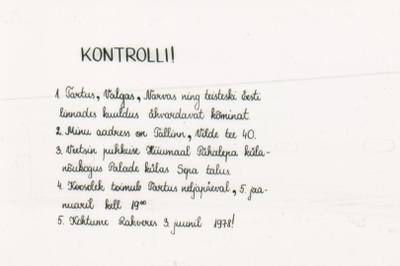 KONTROLLI!
1. Tartus, Valgas, Narvas ning teisteski Eesti
linnades kuuldus ähvardavat kõminat.
2. Minu aadress on Tallinn, Vilde tee 40.
3. Veetsin puhkuse Hiiumaal Pühalepa küla-
nõukogus Palade külas Sepa talus.
4. Koosolek toimub Tartus neljapäeval, 5. jaa-
nuaril kell 19⁰⁰
5. Kohtume Rakveres 3. juunil 1978!